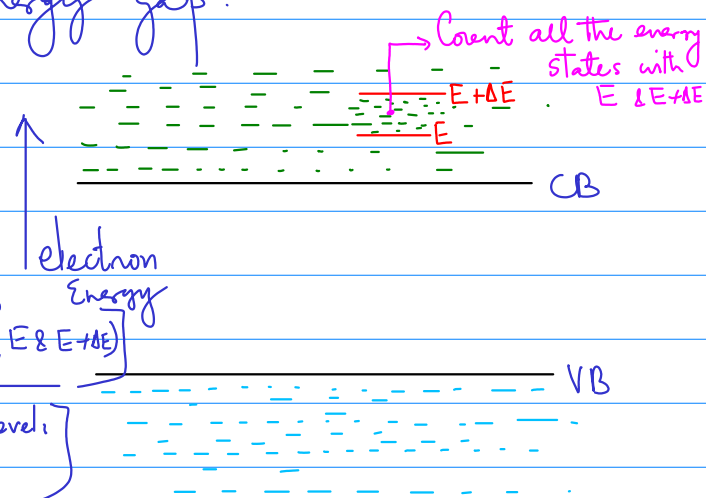 energy gap.
Count all the energy
states with
E & E+ΔE
E+ΔE
E
CB
electron
Energy
E & E+ΔE)
VB
evel,